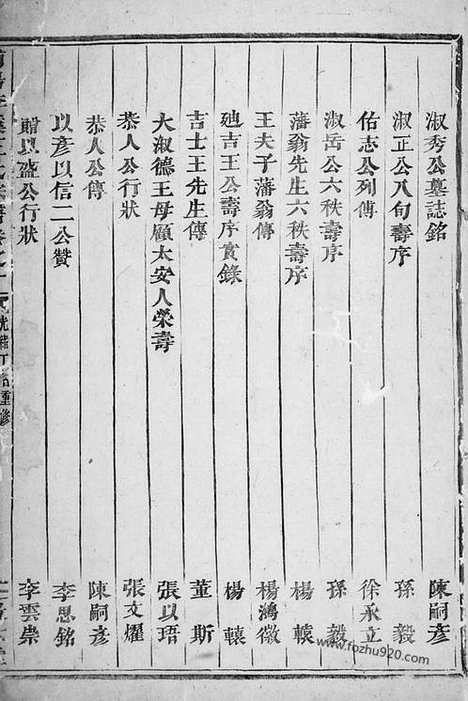 淑秀公墓誌銘 陳嗣彦
淑正公八旬壽序 孫毅
佑志公列傳 徐永立
淑岳公六秩壽序 孫毅
藩翁先生六秩壽序 楊轅
王夫子藩翁傳 楊鴻徽
廸吉王公壽序實錄 楊轅
吉士王先生傳 董斯
大淑德王母顧太安人榮壽 張以珸
恭人公行狀 張文燿
恭人公傳 陳嗣彦
以彦以信二公贊 李思銘
贈以盛公行狀 李雲崇
光緒丁酉重修
www.fozhu920.com